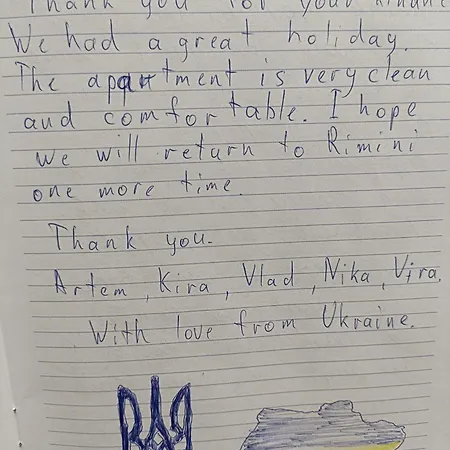 Thank you for your
We had a great holiday.
The apartment is very clean
and comfortable. I hope
we will return to Rimini
one more time.
Thank you.
Artem, Kira, Vlad, Nika, Vira.
With love from Ukraine.